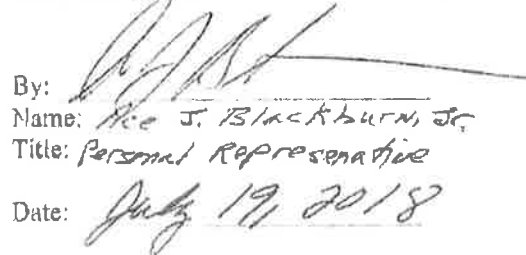 By:
Name: Ace J. Blackburn, Jr.
Title: Personal Represenative
Date: July 19, 2018